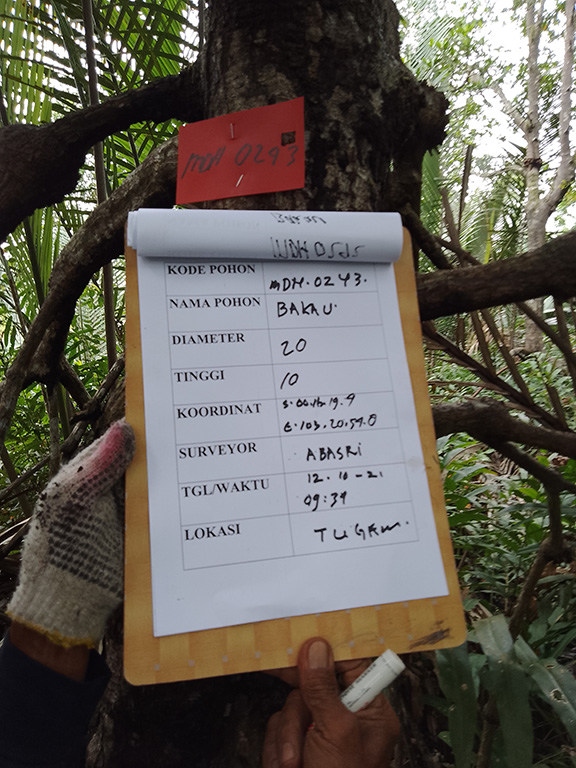 MDH 0293
KODE POHON MDH.0243.
NAMA POHON BAKAU.
DIAMETER 20
TINGGI 10
KOORDINAT
E.103.20.59.8
SURVEYOR ABASRI
TGL/WAKTU 12.10-21
09:39
LOKASI